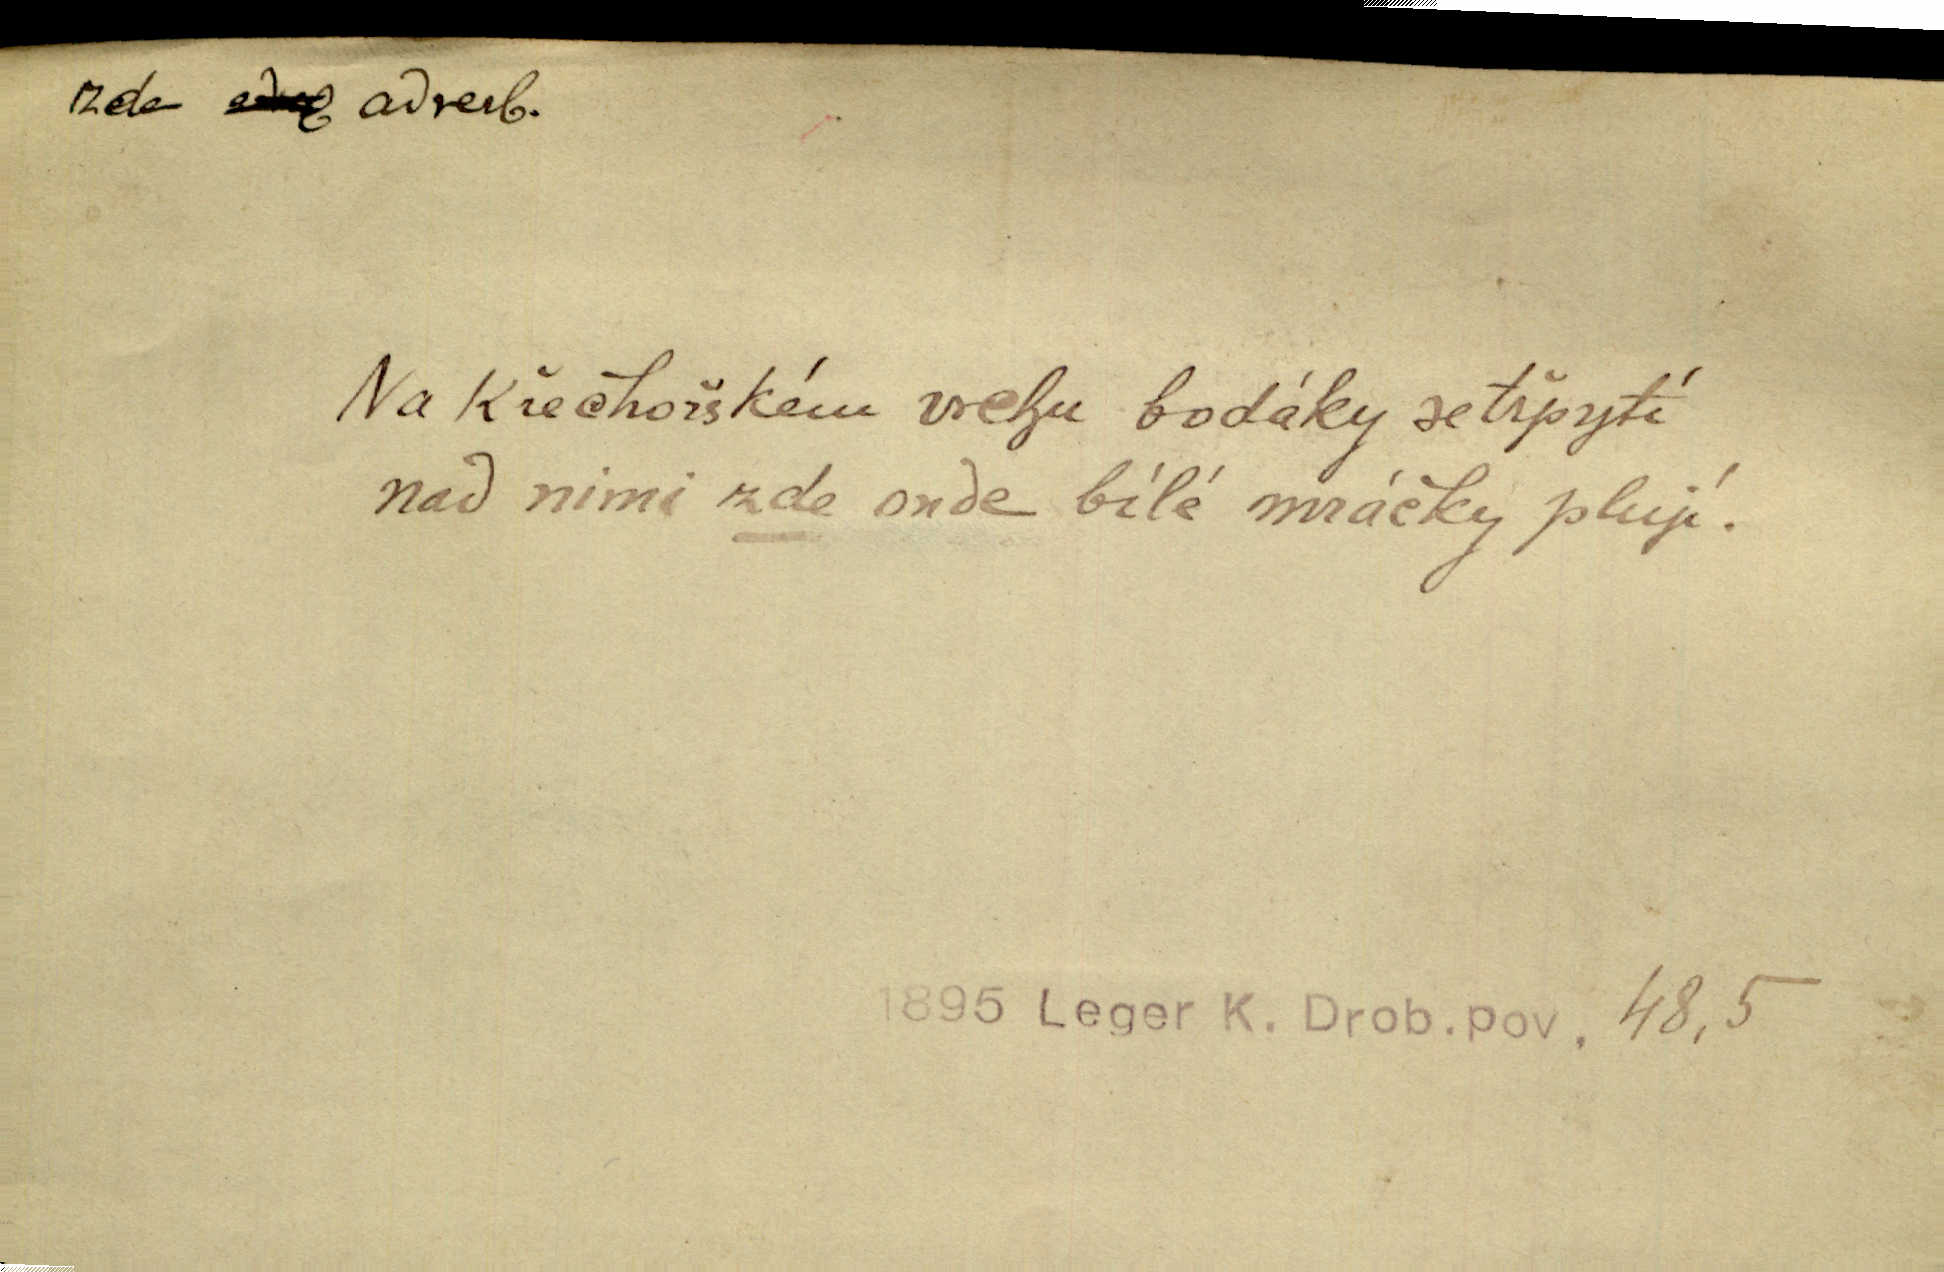 zde adverb.
Na Křečhořském vrchu bodáky se třpytí
nad nimi zde onde bílé mráčky plují.
1895 Leger K. Drob.pov. 48,5